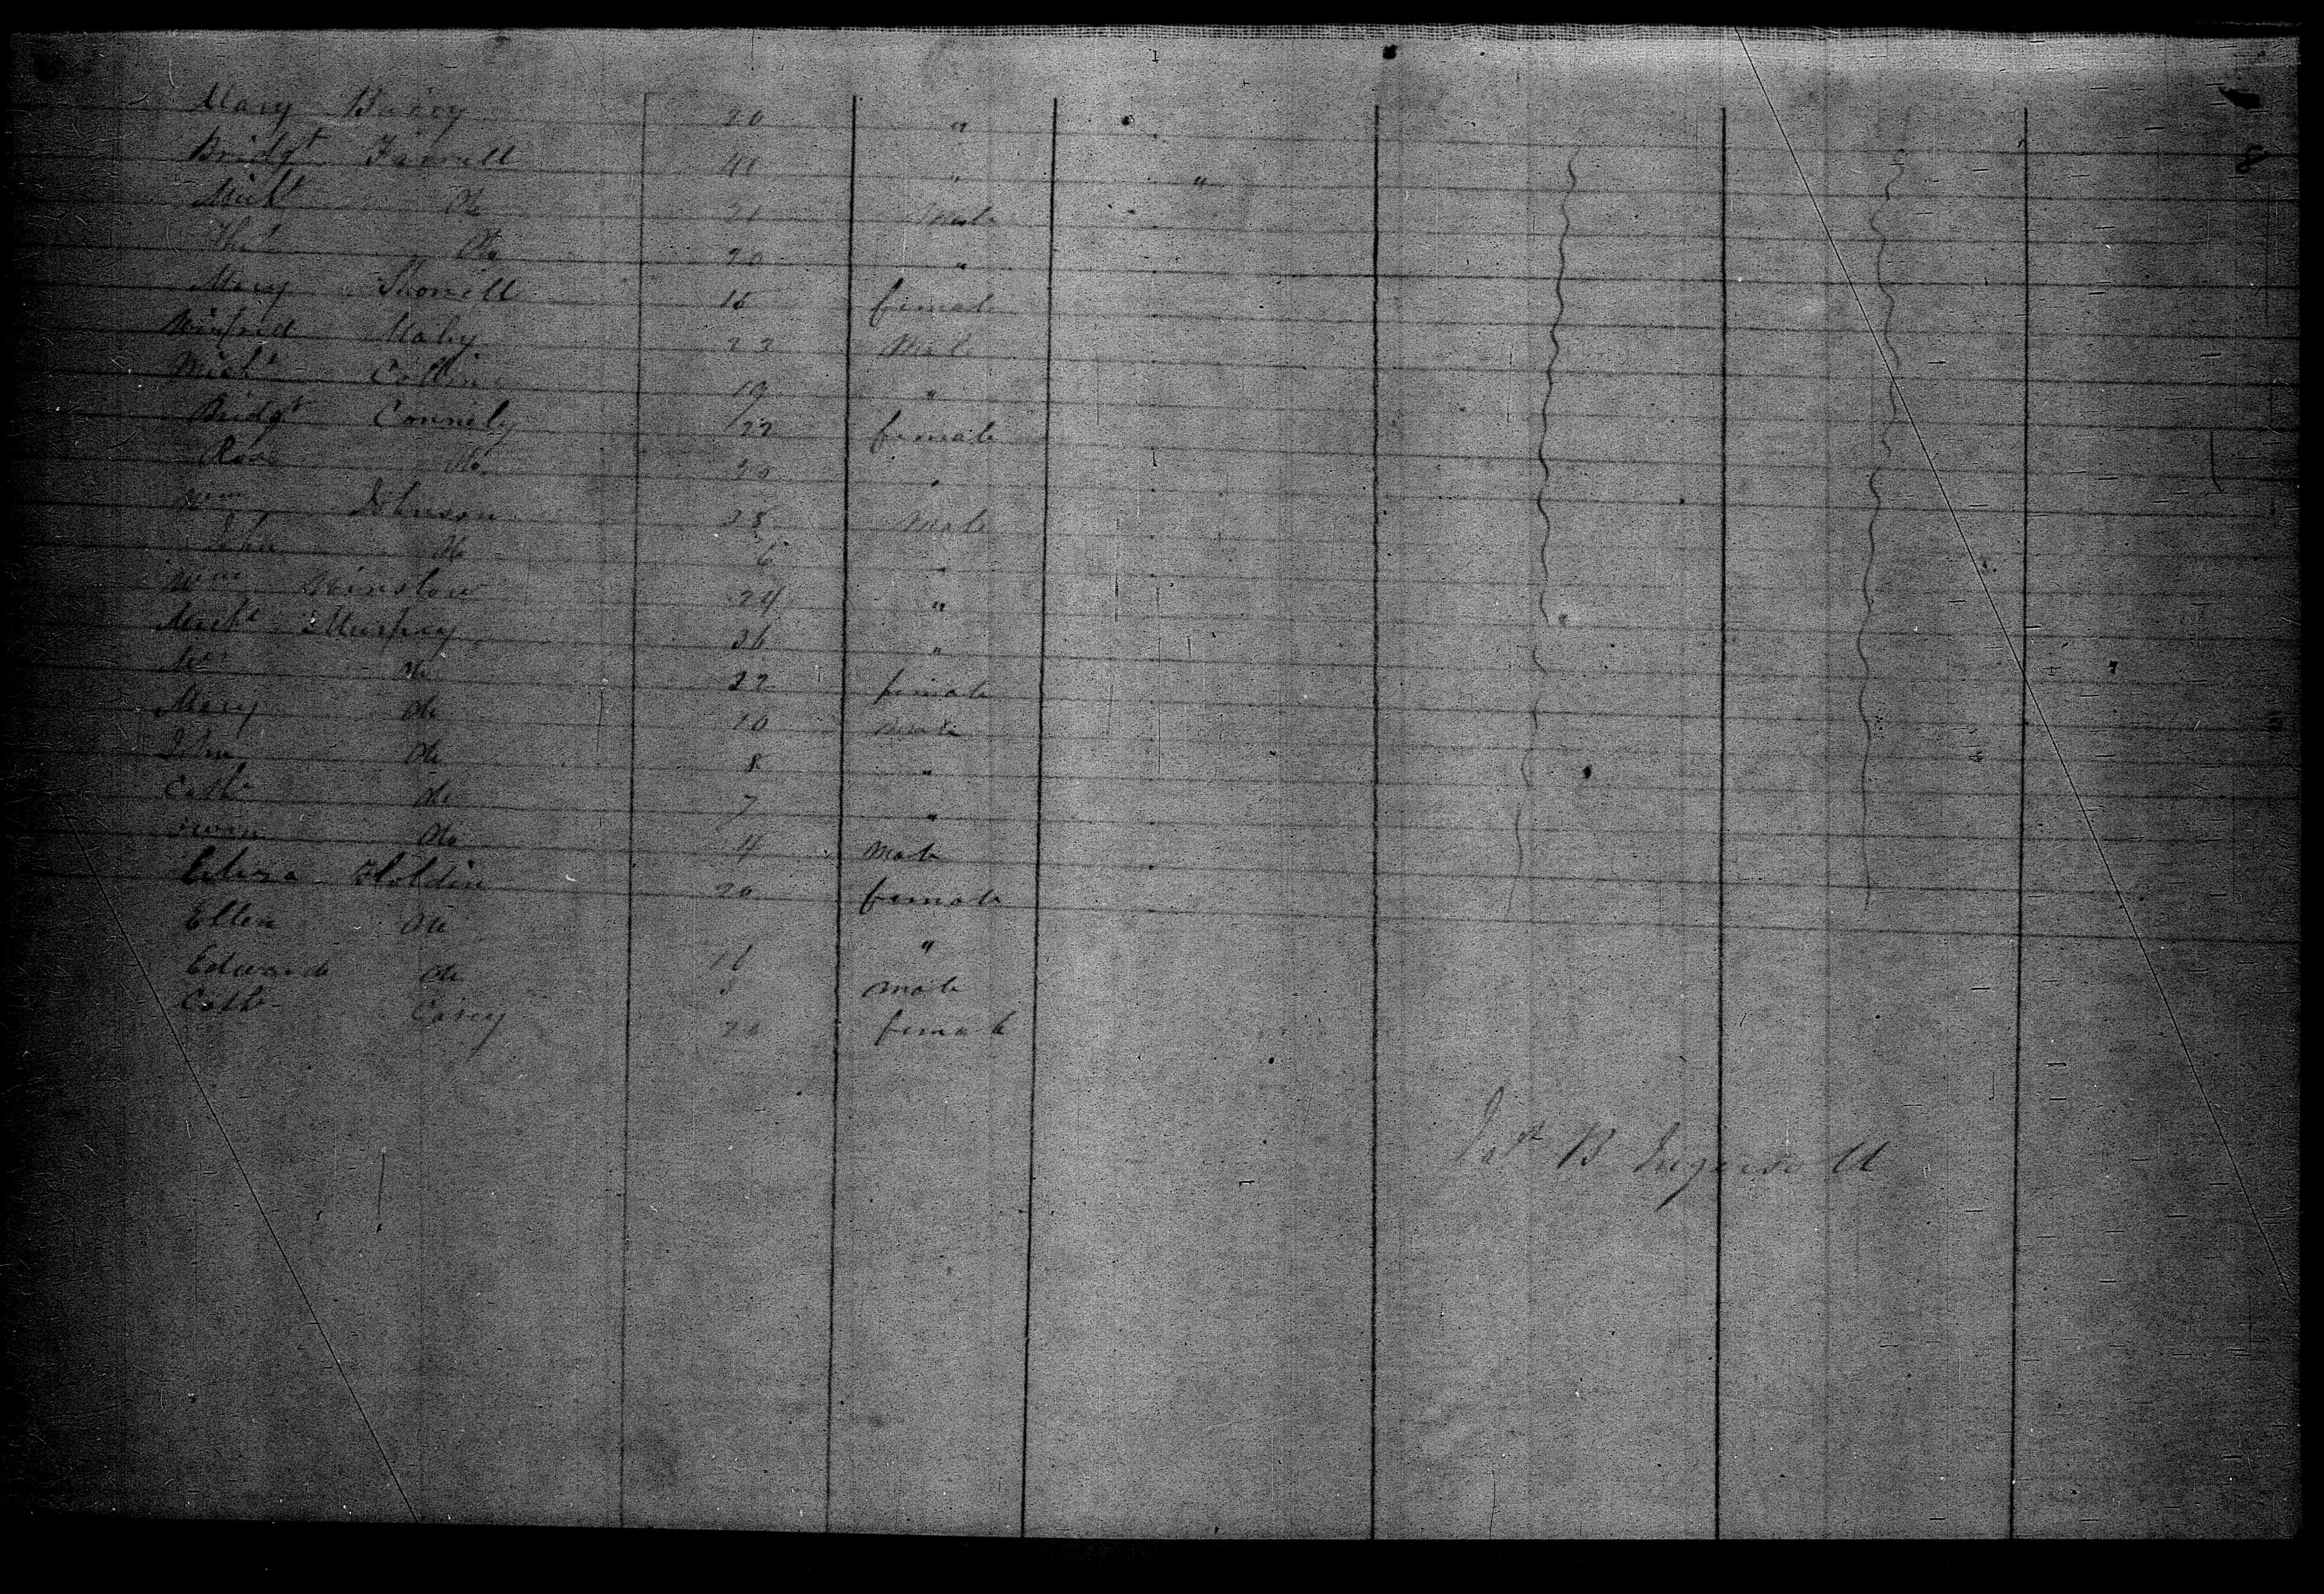 Mary Barry 20 "
Bridgt Farrell 41 " "
Michl Do 21 Male
Thos Do 20 "
Mary 15 female
Winfred Maley 22 Male
Michl Collins 19 "
Bridgt Connely 22 female
Rose Do 30 "
Wm Johnson 28 Male
John Do 6 "
Wm Winslow 24 "
Michl Murphy 36 "
Mrs Do 32 female
Mary Do 10 Male
John Do 8 "
Cathe Do 7 "
Do 4 Male
Eliza Holdin 20 female
Ellen Do 16 "
Edward Do Male
Cath Casey female
B Ingersoll